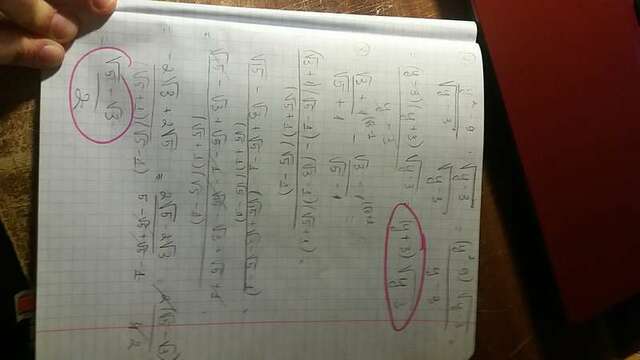 y² - 9 / √(y-3) · √(y-3) / √(y-3) = (y² 9) √(y-3) / y-3 =
= (y-3)(y+3) √(y-3) / y-3 = (y+3) √(y-3)
√3 + 1 / √5 + 1 - √3 - 1 / √5 - 1 =
(√3+1)(√5-1) - (√3-1)(√5+1) / (√5+1)(√5-1) =
√15 - √3 + √5 - 1 - (√15 + √3 - √5 - 1) / (√5+1)(√5-1)
= √15 - √3 + √5 - 1 - √15 - √3 + √5 + 1 / (√5+1)(√5-1)
= -2√3 + 2√5 / (√5+1)(√5-1) = 2√5 - 2√3 / 5 - √5 + √5 - 1 = 2(√5 - √3) / 4 2
= √5 - √3 / 2